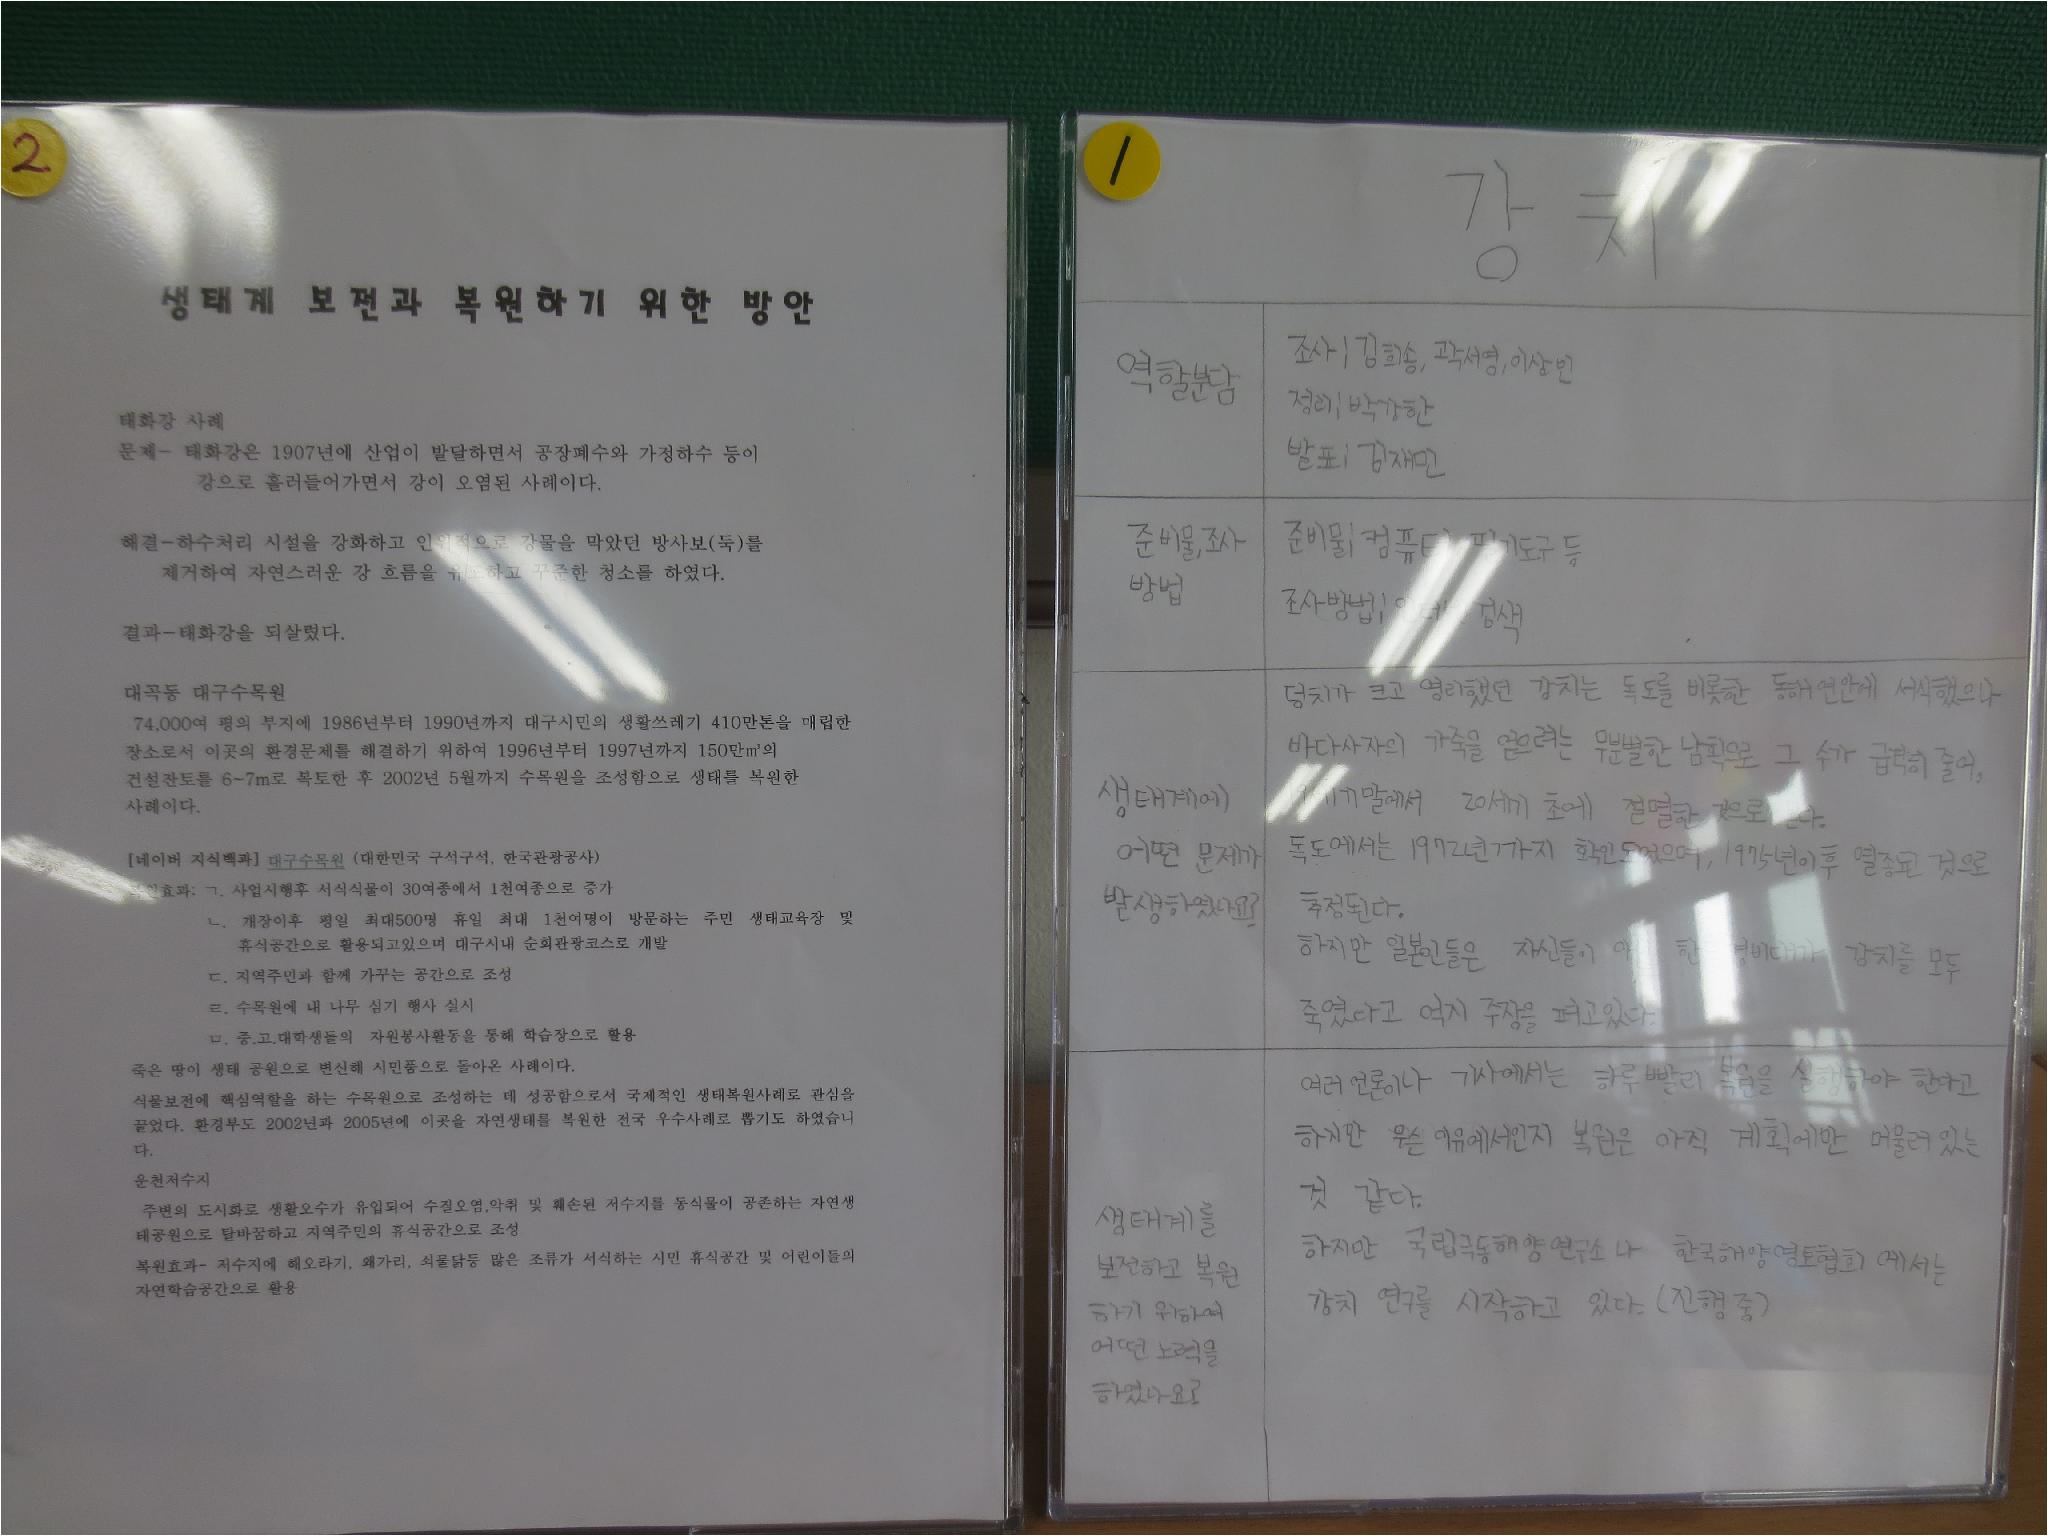 2
생태계 보전과 복원하기 위한 방안
태화강 사례
문제- 태화강은 1907년에 산업이 발달하면서 공장폐수와 가정하수 등이
강으로 흘러들어가면서 강이 오염된 사례이다.
해결-하수처리 시설을 강화하고 인위적으로 강물을 막았던 방사보(둑)를
제거하여 자연스러운 강 흐름을 유도하고 꾸준한 청소를 하였다.
결과-태화강을 되살렸다.
대곡동 대구수목원
74,000여 평의 부지에 1986년부터 1990년까지 대구시민의 생활쓰레기 410만톤을 매립한
장소로서 이곳의 환경문제를 해결하기 위하여 1996년부터 1997년까지 150만㎥의
건설잔토를 6~7m로 복토한 후 2002년 5월까지 수목원을 조성함으로 생태를 복원한
사례이다.
[네이버 지식백과] 대구수목원 (대한민국 구석구석, 한국관광공사)
복원효과: ㄱ. 사업시행후 서식식물이 30여종에서 1천여종으로 증가
ㄴ. 개장이후 평일 최대500명 휴일 최대 1천여명이 방문하는 주민 생태교육장 및
휴식공간으로 활용되고있으며 대구시내 순회관광코스로 개발
ㄷ. 지역주민과 함께 가꾸는 공간으로 조성
ㄹ. 수목원에 내 나무 심기 행사 실시
ㅁ. 중.고.대학생들의 자원봉사활동을 통해 학습장으로 활용
죽은 땅이 생태 공원으로 변신해 시민품으로 돌아온 사례이다.
식물보전에 핵심역할을 하는 수목원으로 조성하는 데 성공함으로서 국제적인 생태복원사례로 관심을
끌었다. 환경부도 2002년과 2005년에 이곳을 자연생태를 복원한 전국 우수사례로 뽑기도 하였습니
다.
운천저수지
주변의 도시화로 생활오수가 유입되어 수질오염,악취 및 훼손된 저수지를 동식물이 공존하는 자연생
태공원으로 탈바꿈하고 지역주민의 휴식공간으로 조성
복원효과- 저수지에 해오라기, 왜가리, 쇠물닭등 많은 조류가 서식하는 시민 휴식공간 및 어린이들의
자연학습공간으로 활용
1
강치
역할분담
조사; 김희송, 곽서영, 이상빈
정리; 박강한
발표; 김재민
준비물,조사
방법
준비물; 컴퓨터, 필기도구 등
조사방법; 인터넷 검색
생태계에
어떤 문제가
발생하였나요?
덩치가 크고 영리했던 강치는 독도를 비롯한 동해 연안에 서식했으나
바다사자의 가죽을 얻으려는 무분별한 남획으로 그 수가 급격히 줄어,
19세기말에서 20세기 초에 절멸한 것으로 본다.
독도에서는 1972년까지 확인되었으며, 1975년이후 멸종된 것으로
추정된다.
하지만 일본인들은 자신들이 아닌 한국경비대가 강치를 모두
죽였다고 억지 주장을 펴고있다.
생태계를
보전하고 복원
하기 위하여
어떤 노력을
하였나요?
여러 언론이나 기사에서는 하루 빨리 복원을 실행하야 한다고
하지만 무슨 이유에서인지 복원은 아직 계획에만 머물러 있는
것 같다.
하지만 국립극동해양연구소 나 한국해양영토협회 에서는
강치 연구를 시작하고 있다. (진행 중)